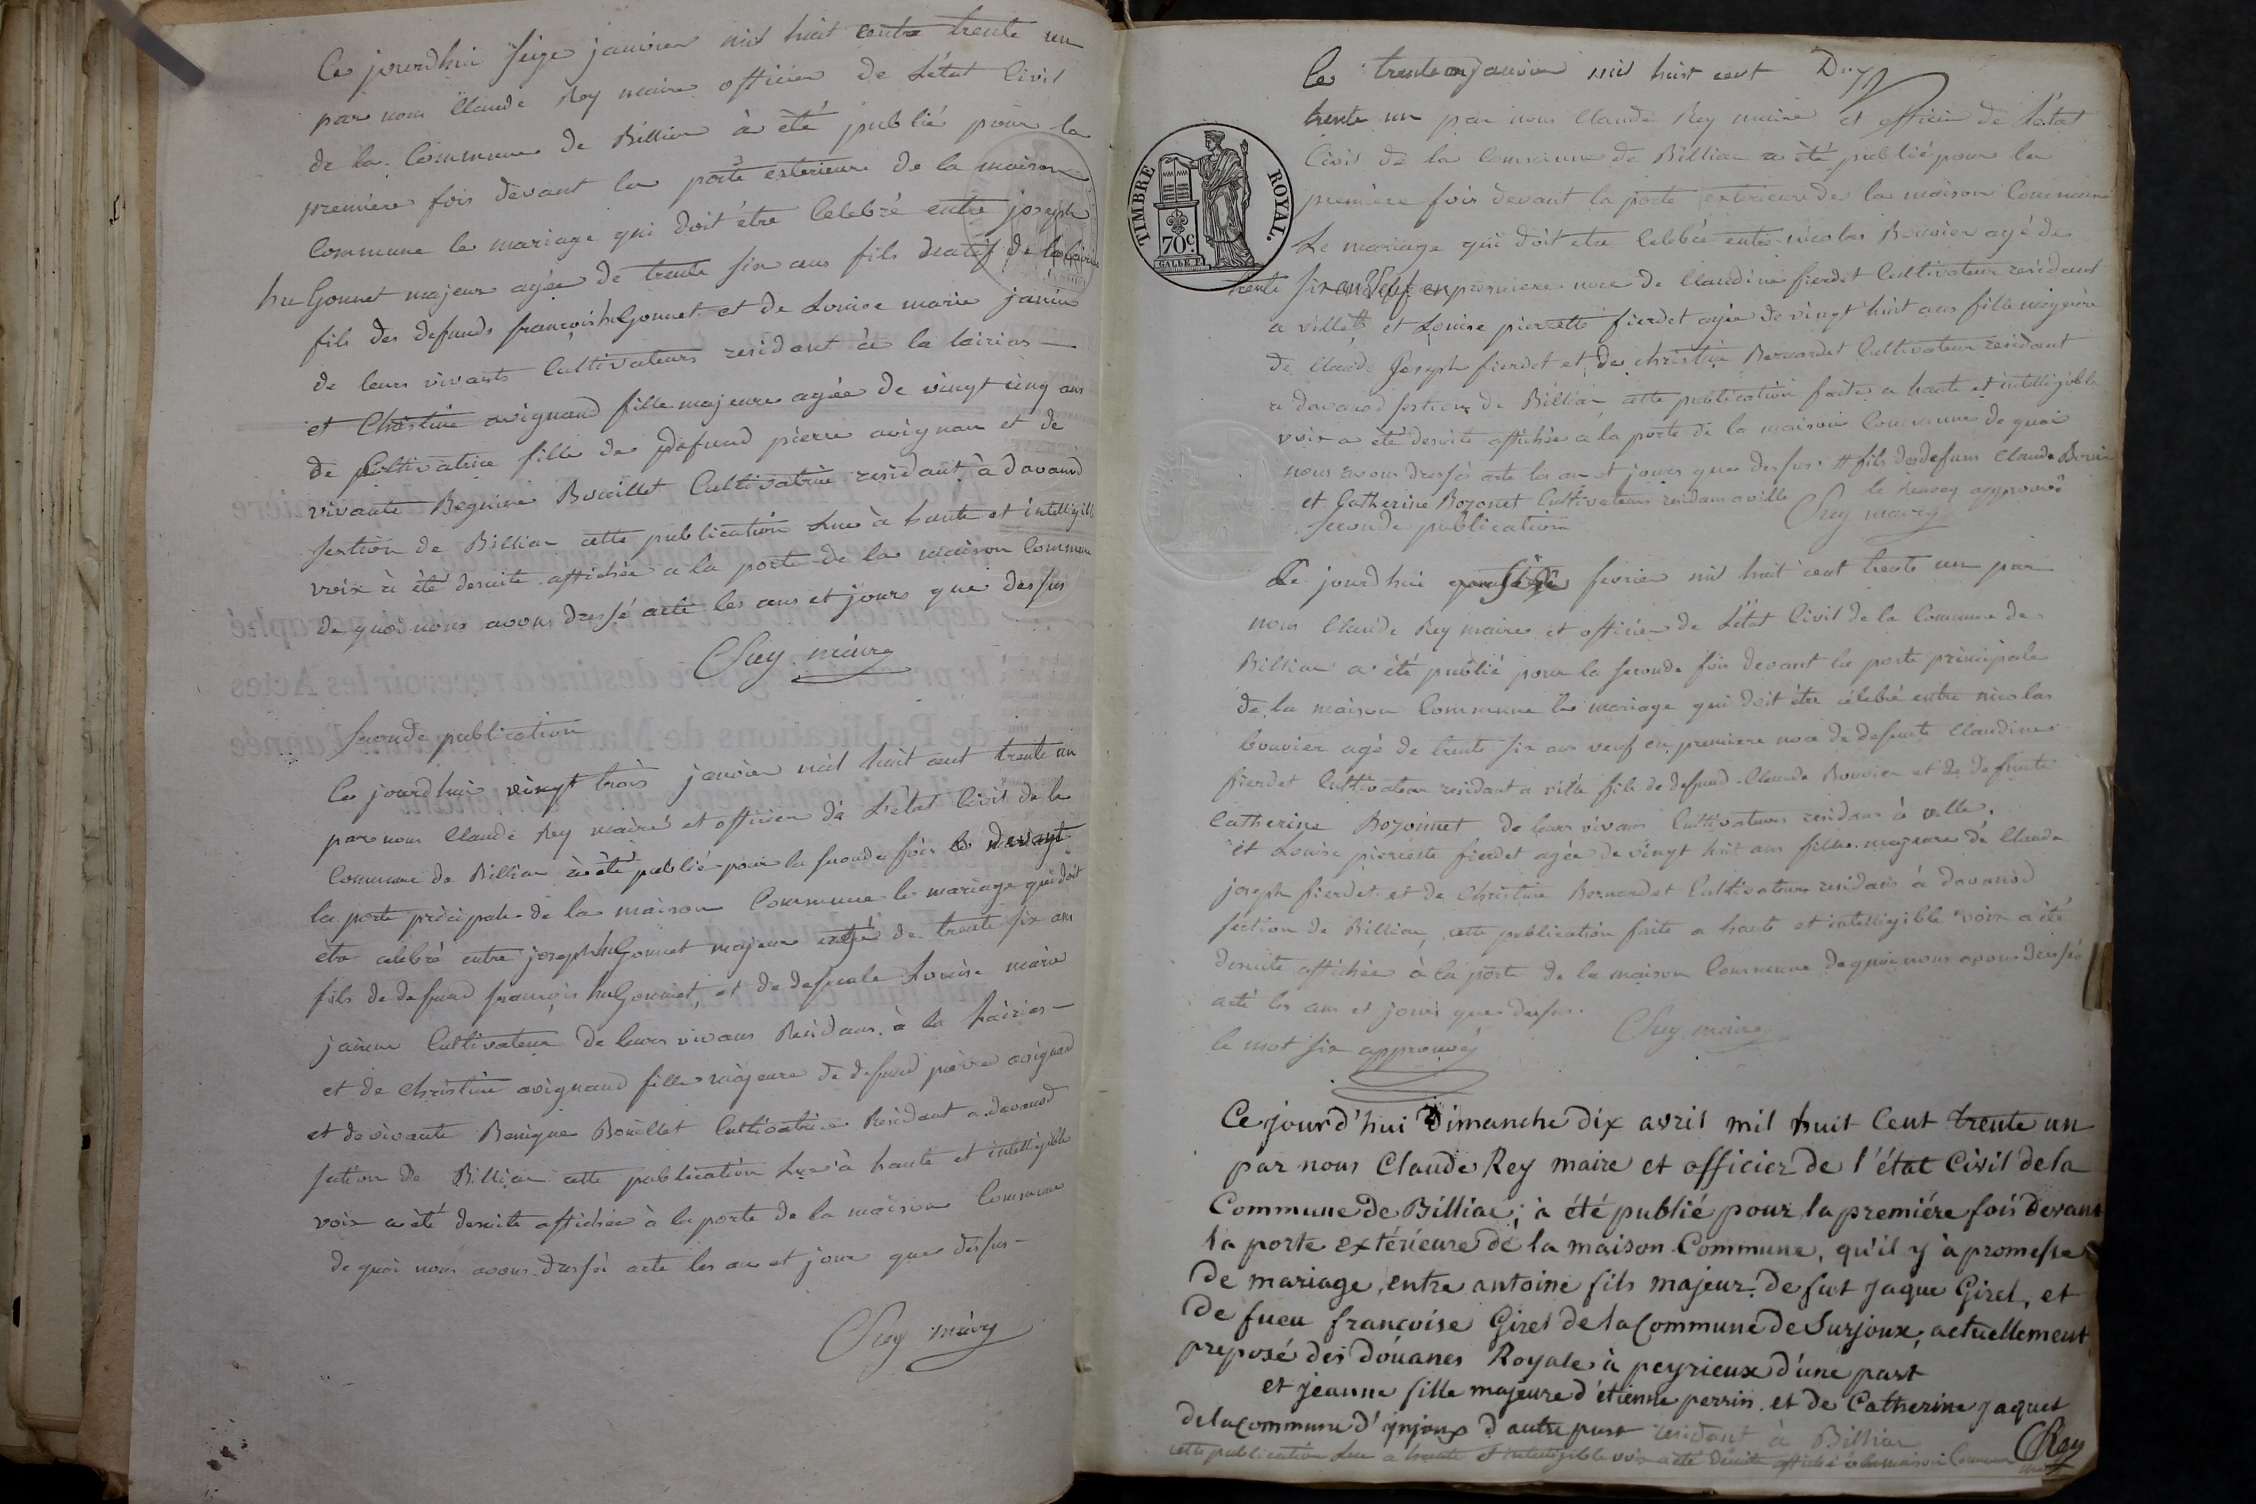 Ce jourdhui seize janvier mil huit cents trente un
par nous Claude Rey maire officier de L'état Civil
de la Commune de Billian à été publié pour la
premiere fois devant la porte exterieure de la maison
Commune le mariage qui doit être Celebré entre joseph
hu Gonnet majeur agée de trente six ans fils
fils des defunds françois huGonnet et de Louise marie janin
de leurs vivants Cultivateurs residant à la
et Christine avignand fille majeure agée de vingt cinq ans
de Cultivatrice fille de defund pierre avignan et de
vivante Bouillet Cultivatrice residant à davanod
section de Billian cette publication Lue à haute et intelligible
voix à été desuite affichée a la porte de la maison Commune
de quoi nous avons dressé acte les ans et jours que dessus
C Rey maire
Seconde publication
Ce jourdhui vingt trois janvier mil huit cent trente un
par nous Claude Rey maire et officier de L'état Civil de la
Commune de Billian à été publié pour la seconde fois devant
la porte prècipale de la maison Commune le mariage qui doit
être celebré entre joseph huGonnet majeur agé de trente six ans
fils de defund françois huGonnet, et de defunte Louise marie
Cultivateur de leurs vivans Residans à la
et de Christine avignand fille majeure de defund pierre avignand
et de vivante Benigne Bouillet Cultivatrice Residant a davanod
section de Billian cette publication Lue à haute et intelligible
voix a été desuite affichée à la porte de la maison Commune
de quoi nous avons dressé acte les an et jour que dessus
C Rey maire
TIMBRE ROYAL.
70c.
Ce trente un janvier mil huit cent
trente un par nous Claude Rey maire et officier de l'état
Civil de la Commune de Billian a été publié pour la
première fois devant la porte exterieure de la maison Commune
Le mariage qui doit etre Celebré entre nicolas Bouvier agé de
trente six ans veuf en premiere noce de Claudine fierdet Cultivateur residant
a ville # et Louise pierrette fierdet agée de vingt huit ans fille majeure
de Claude Joseph fierdet et de christine Bernardet Cultivateur residant
a davanod section de Billian cette publication faite a haute et intelligible
voix a été desuite affichée a la porte de la maison Commune de quoi
nous avons dressé acte les an et jours que dessus # fils de defunt Claude Bouvier
et Catherine Bozonet Cultivateurs residans a ville le renvoy approuvé
C Rey maire
seconde publication
Ce jourdhui six fevrier mil huit cent trente un par
nous Claude Rey maire et officier de L'état Civil de la Commune de
Billian a été publié pour la seconde fois devant la porte principale
de la maison Commune le mariage qui doit être célebré entre nicolas
bouvier agé de trente six ans veuf en premiere noce de defunte Claudine
fierdet Cultivateur residant a ville fils de defund Claude Bouvier et de defunte
Catherine Bozonnet de leurs vivans Cultivateurs residans à ville,
et Louise pierrette fierdet agée de vingt huit ans fille majeure de Claude
joseph fierdet et de Christine Bernardet Cultivateurs residans à davanod
section de Billian, cette publication faite a haute et intelligible voix a été
desuite affichée à la porte de la maison Commune de quoi nous avons dressé
acte les ans et jours que dessus.
C Rey maire
le mot six approuvé
Ce jourd'hui Dimanche dix avril mil huit Cent trente un
par nous Claude Rey maire et officier de l'état Civil de la
Commune de Billiac; à été publié pour la premiére fois devant
la porte extérieure de la maison Commune, qu'il y à promesse
de mariage, entre antoine fils majeur de fut Jaque Girel, et
de fueu françoise Girel de la Commune de Surjoux, actuellement
preposé des douanes Royale à peyrieux d'une part
et Jeanne fille majeure d'étienne perrin et de Catherine Jaquet
de la commune d'injoux d'autre part residant à Billian
cette publication Lue a haute et intelligible voix a été desuite affiché à la maison Commune
CRey